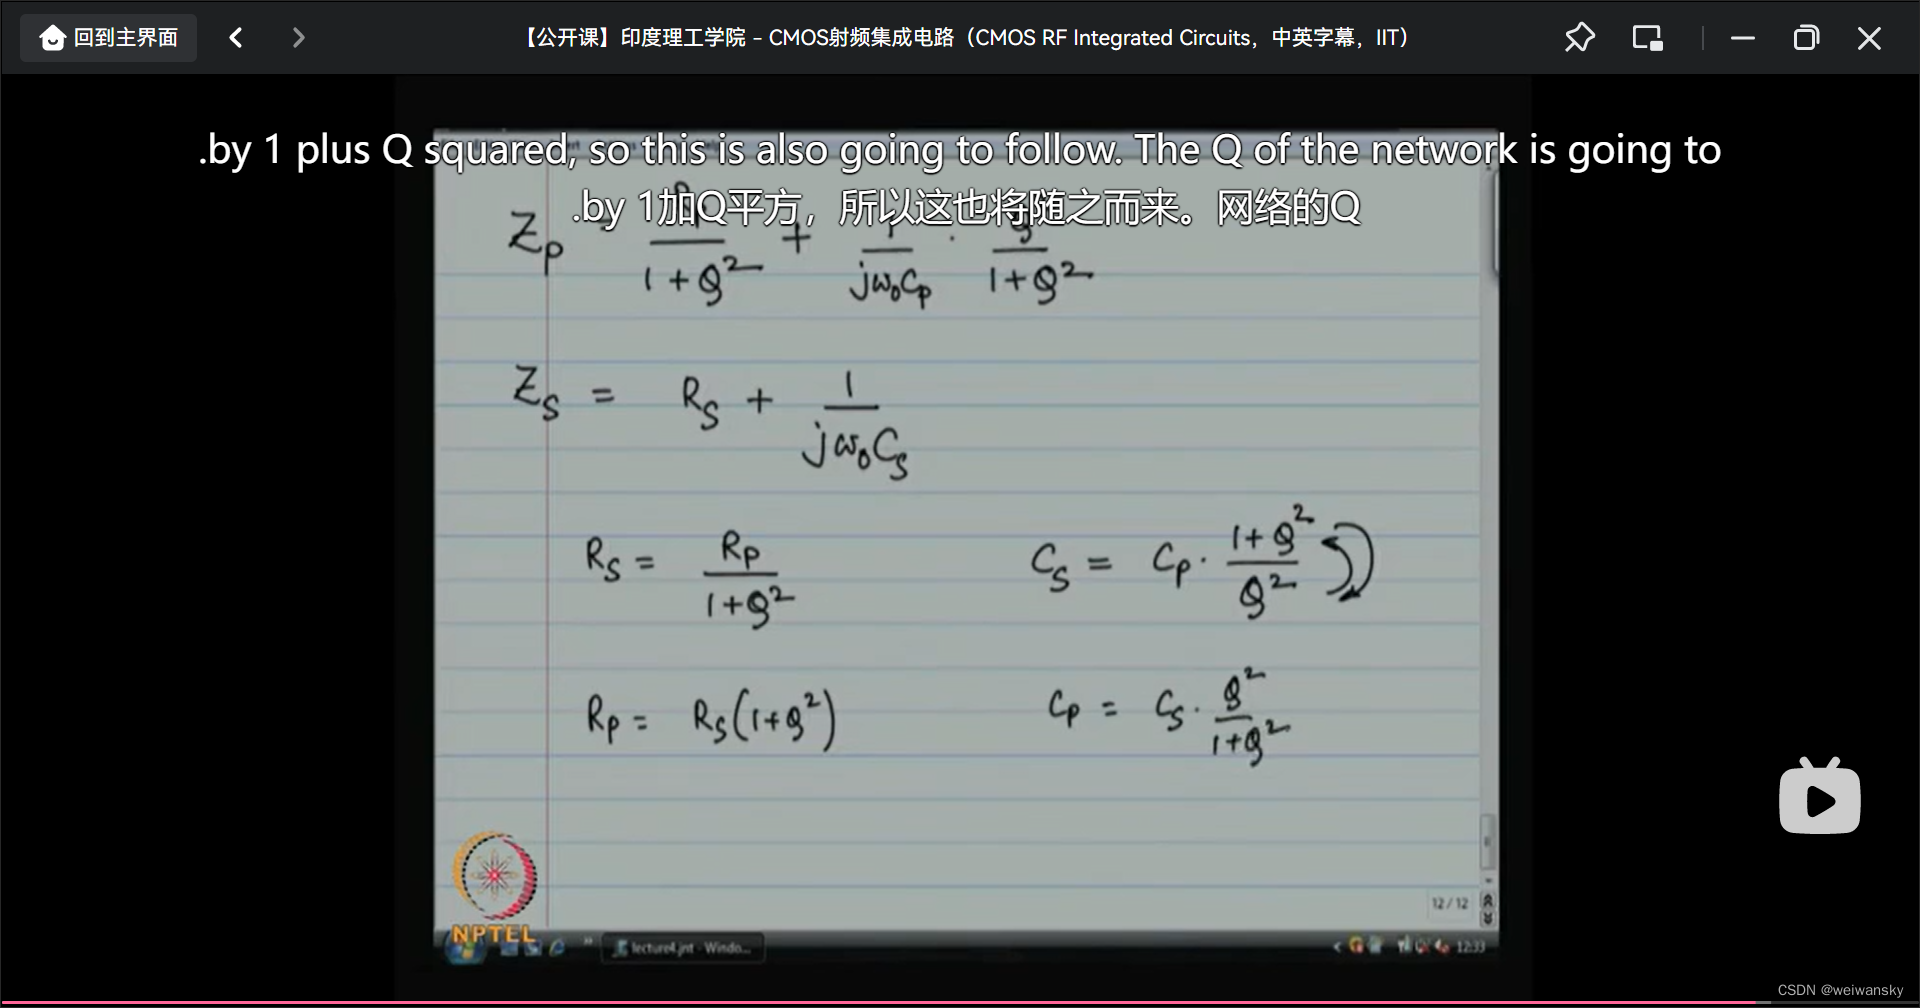 回到主界面
【公开课】印度理工学院 - CMOS射频集成电路（CMOS RF Integrated Circuits，中英字幕，IIT）
.by 1 plus Q squared, so this is also going to follow. The Q of the network is going to
.by 1加Q平方，所以这也将随之而来。网络的Q
Zp = / (1 + Q²) + / (jω₀Cp) · / (1 + Q²)
Zs = Rs + 1 / (jω₀Cs)
Rs = Rp / (1+Q²) Cs = Cp · (1+Q²) / Q²
Rp = Rs(1+Q²) Cp = Cs · Q² / (1+Q²)
12 / 12
NPTEL
lecture4.jnt - Windo...
12:33
CSDN @weiwansky